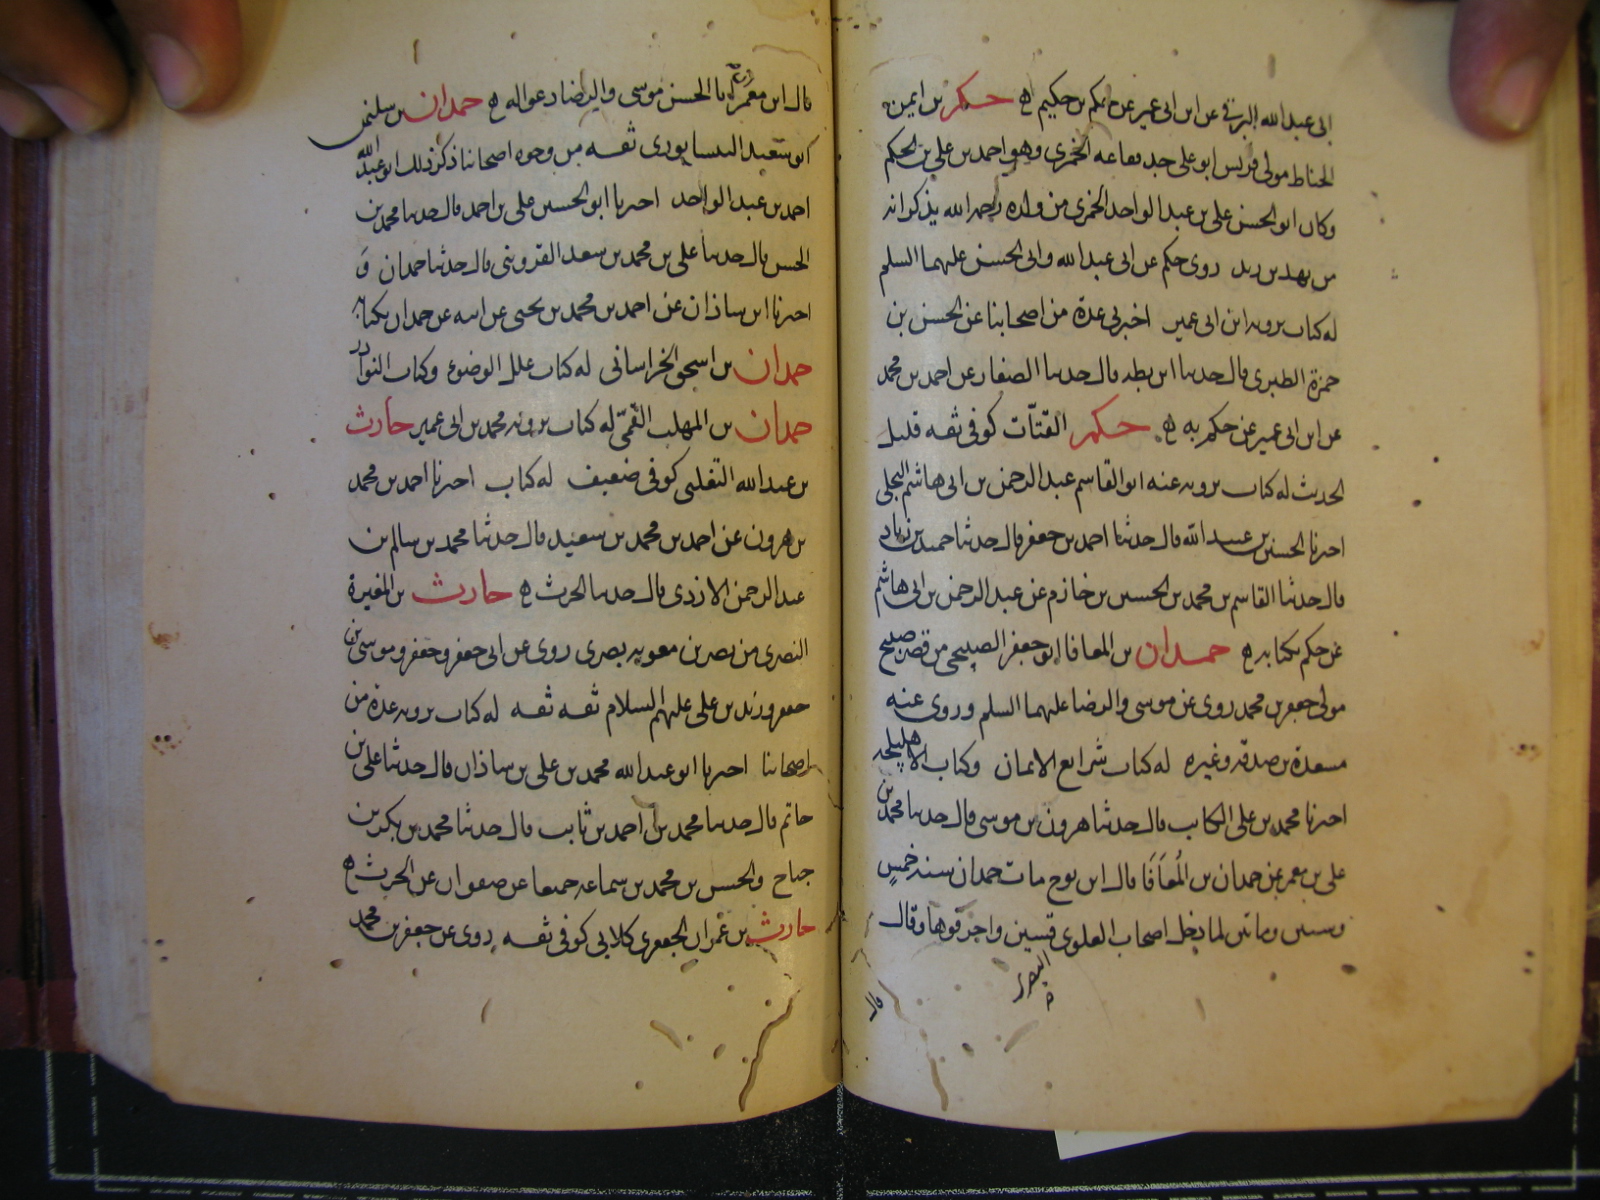 ابى عبد الله البرقى عن ابن ابى عمير عن حكم بن حكيم ه‍ حكم بن ايمن
الحناط مولى قريش ابو على جد فقاعه الخمرى وهو احمد بن على بن الحكم
وكان ابو الحسن على بن عبد الواحد الخمرى من ولده رحمه الله يذكر انه
من نهد بن زيد روى حكم عن ابى عبد الله وابى الحسن عليهما السلم
له كتاب يرويه ابن ابى عمير اخبرنى عدة من اصحابنا عن الحسن بن
حمزة الطبرى قال حدثنا ابن بطه قال حدثنا الصفار عن احمد بن محمد
عن ابن ابى عمير عن حكم به ه‍ حكم القتّات كوفى ثقه قليل
الحديث له كتاب يرويه عنه ابو القاسم عبد الرحمن بن ابى هاشم البجلى
اخبرنا الحسين بن عبيد الله قال حدثنا احمد بن جعفر قال حدثنا حميد بن زياد
قال حدثنا القاسم بن محمد بن الحسين بن خازم عن عبد الرحمن بن ابى هاشم
عن حكم بكتابه ه‍ حمدان بن المعافا ابو جعفر الصبيحى من قصر صبيح
مولى جعفر بن محمد روى عن موسى والرضا عليهما السلم وروى عنه
مسعدة بن صدقه وغيره له كتاب شرايع الايمان وكتاب الاهليلجه
اخبرنا محمد بن على الكاتب قال حدثنا هرون بن موسى قال حدثنا محمد بن
على بن معمر عن حمدان بن المُعَافَا قال ابن نوح مات حمدان سنه خمسٍ
وستين وماتين لما دخل اصحاب العلوى قسين واحرقوها وقال
البصرى
قال
قال ابن معمر ان ابا الحسن موسى والرضا دعوا له ه‍ حمدان بن سليمن
ابو سعيد النيسابورى ثقه من وجوه اصحابنا ذكر ذلك ابو عبد الله
احمد بن عبد الواحد اخبرنا ابو الحسين على بن احمد قال حدثنا محمد بن
الحسن قال حدثنا على بن محمد بن سعد القزوينى قال حدثنا حمدان وَ
اخبرنا ابن شاذان عن احمد بن محمد بن يحيى عن ابيه عن حمدان بكتابه
حمدان بن اسحق الخراسانى له كتاب علل الوضوء وكتاب النوادر
حمدان بن المهلب القمّى له كتاب يرويه محمد بن ابى عمير حارث
بن عبد الله التغلبى كوفى ضعيف له كتاب اخبرنا احمد بن محمد
بن هرون عن احمد بن محمد بن سعيد قال حدثنا محمد بن سالم بن
عبد الرحمن الازدى قال حدثنا الحرث ه‍ حارث بن المغيرة
النصرى من نصر بن معويه بصرى روى عن ابى جعفر وجعفر وموسى بن
جعفر وزيد بن على عليهم السلام ثقه ثقه له كتاب يرويه عدة من
اصحابنا اخبرنا ابو عبد الله محمد بن على بن شاذان قال حدثنا على بن
حاتم قال حدثنا محمد بن احمد بن ثابت قال حدثنا محمد بن بكر بن
جناح والحسن بن محمد بن سماعه جميعا عن صفوان عن الحرث ه‍
حارث بن عمران الجعفرى كلابى كوفى ثقه روى عن جعفر بن محمد